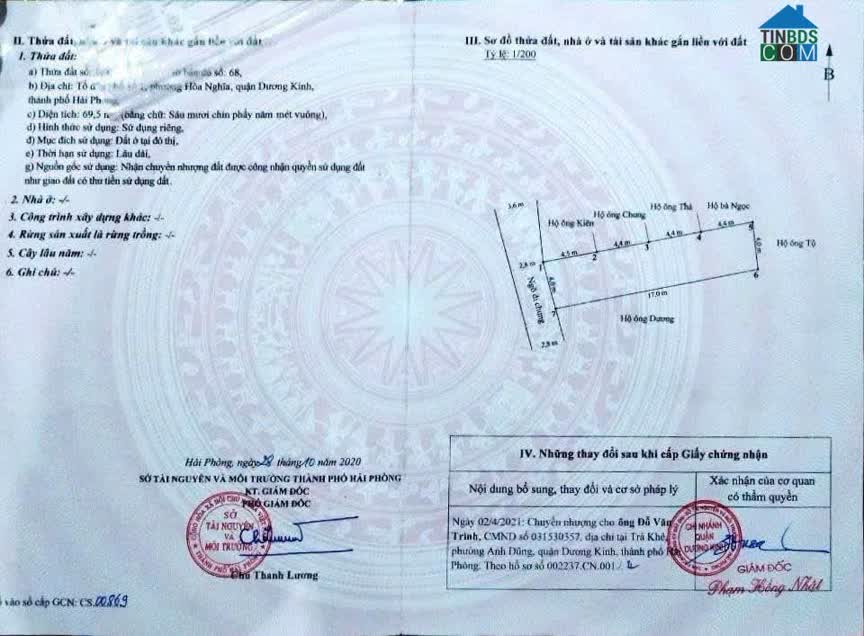 TINBDS
COM
II. Thửa đất, và tài sản khác gắn liền với đất
1. Thửa đất:
a) Thửa đất số: số: 68,
b) Địa chỉ: Tổ phường Hòa Nghĩa, quận Dương Kinh,
thành phố Hải
c) Diện tích: 69,5 (bằng chữ: Sáu mươi chín phẩy năm mét vuông),
d) Hình thức sử dụng: Sử dụng riêng,
đ) Mục đích sử dụng: Đất ở tại đô thị,
e) Thời hạn sử dụng: Lâu dài,
g) Nguồn gốc sử dụng: Nhận chuyển nhượng đất được công nhận quyền sử dụng đất
như giao đất có thu tiền sử dụng đất.
2. Nhà ở: -/-
3. Công trình xây dựng khác: -/-
4. Rừng sản xuất là rừng trồng: -/-
5. Cây lâu năm: -/-
6. Ghi chú: -/-
Hải Phòng, ngày 28 tháng 10 năm 2020
SỞ TÀI NGUYÊN VÀ MÔI TRƯỜNG THÀNH PHỐ HẢI PHÒNG
KT. GIÁM ĐỐC
PHÓ GIÁM ĐỐC
SỞ
TÀI NGUYÊN
VÀ
MÔI TRƯỜNG
Chu Thanh Lương
vào sổ cấp GCN: CS.00869
III. Sơ đồ thửa đất, nhà ở và tài sản khác gắn liền với đất
Tỷ lệ: 1/200
B
3,6 m
Hộ ông Kiên
Hộ ông Chung
Hộ ông Thả
Hộ bà Ngọc
Hộ ông Tộ
2,8 m
1
4,5 m
2
4,4 m
3
4,4 m
4
4,4 m
5
4,0 m
6
4,0 m
17,0 m
Ngõ đi chung
Hộ ông Dương
2,8 m
IV. Những thay đổi sau khi cấp Giấy chứng nhận
Nội dung bổ sung, thay đổi và cơ sở pháp lý
Xác nhận của cơ quan
có thẩm quyền
Ngày 02/4/2021: Chuyển nhượng cho ông Đỗ Văn
Trình, CMND số 031530357, địa chỉ tại Trà Khê,
phường Anh Dũng, quận Dương Kinh, thành phố
Phòng. Theo hồ sơ số 002237.CN.001
CHI NHÁNH
QUẬN
DƯƠNG KINH
GIÁM ĐỐC
Phạm Hồng Nhật